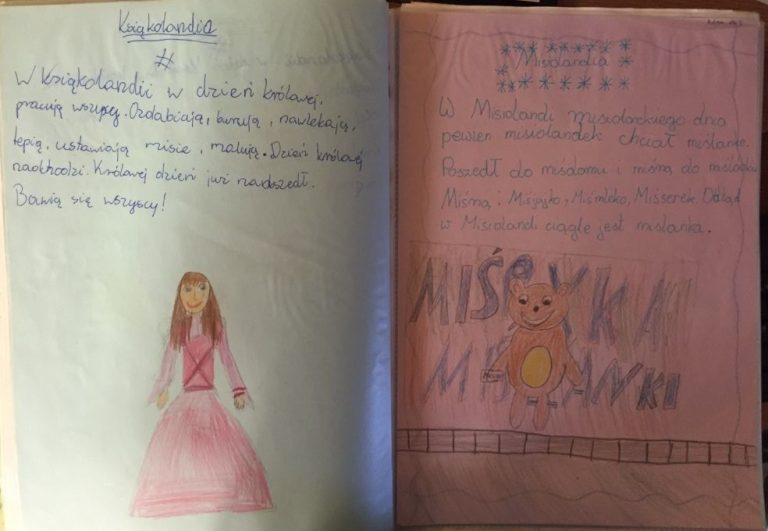 Książkolandia
#
W Książkolandii w dzień królowej,
pracują wszyscy. Ozdabiają, burują, nawlekają,
lepią, ustawiają misie, malują. Dzień królowej
nadchodzi. Królowej dzień już nadszedł.
Bawią się wszyscy!
Misiolandia
W Misiolandi misiolorckiego dnia
pewien misiolandek chciał miślankę.
Poszedł do miśdomu i miśną do
Miśną i Miśjajko, Miśmleko, Miśserek. Odtąd
w Misiolandi ciągle jest miślanka.
MIŚ KA
MIŚLANKI